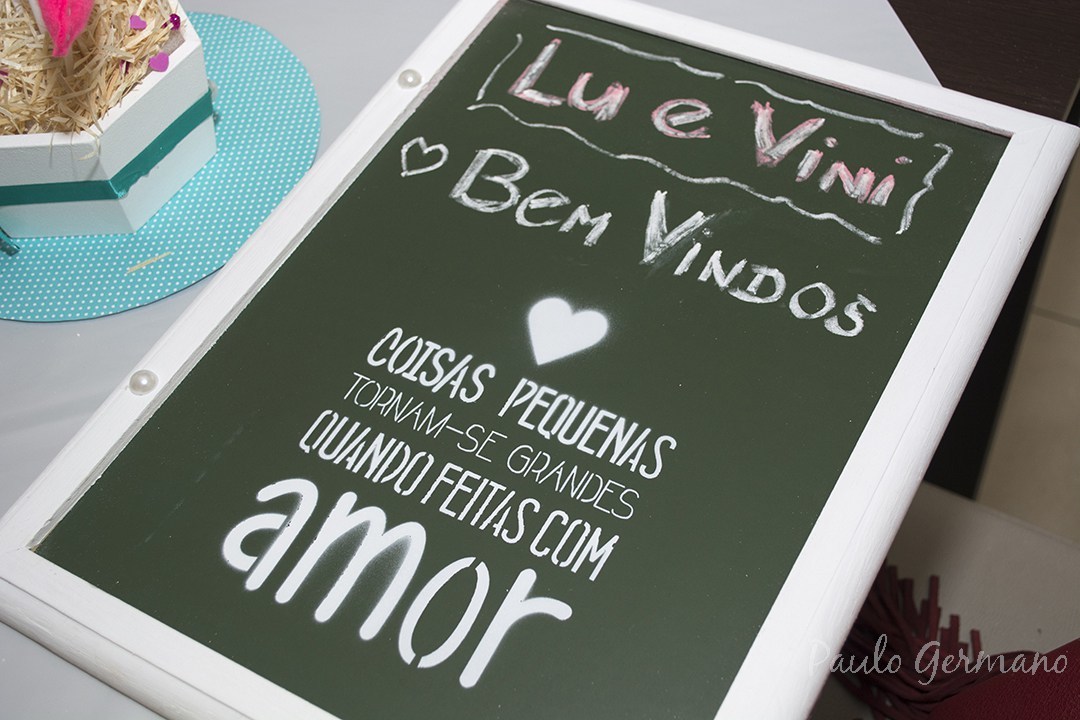 Lu e Vini
Bem Vindos
COISAS PEQUENAS
TORNAM-SE GRANDES
QUANDO FEITAS COM
amor
Paulo Germano